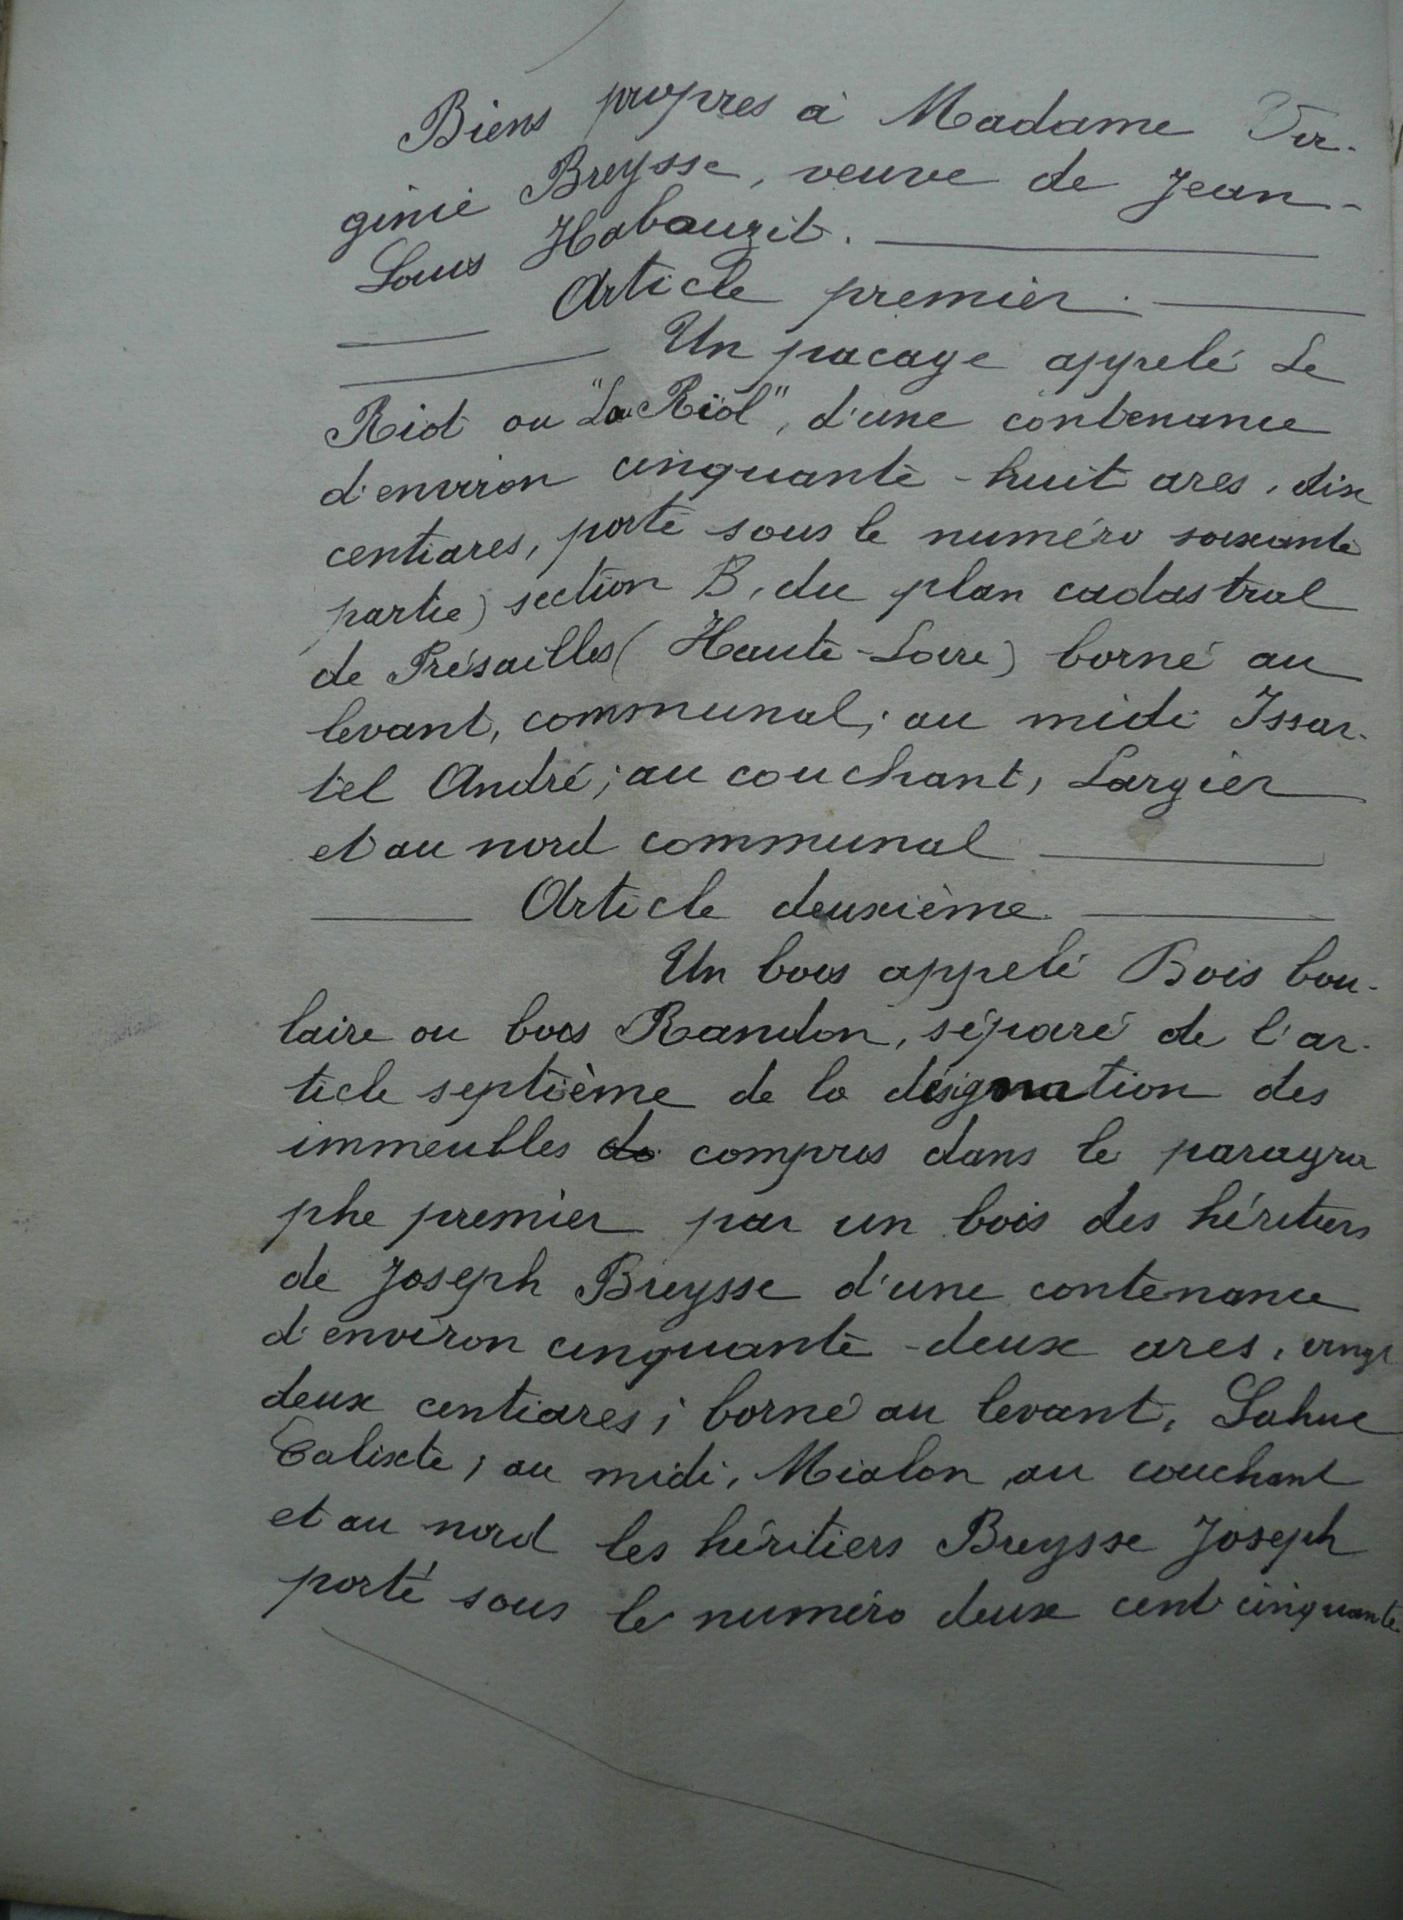 Biens propres à Madame Vir-
ginie Breysse, veuve de Jean-
Louis Habouzit.
Article premier.
Un pacage appelé Le
Riot ou "La Riol", d'une contenance
d'environ cinquante-huit ares, dix
centiares, porté sous le numéro soixante
partie) section B, du plan cadastral
de Présailles (Haute-Loire) borné au
levant, communal; au midi Issar-
tel André; au couchant, Largier
et au nord communal
Article deuxième.
Un bois appelé Bois bou-
laire ou bois Randon, séparé de l'ar-
ticle septième de la désignation des
immeubles de compris dans le paragra
phe premier par un bois des héritiers
de Joseph Breysse d'une contenance
d'environ cinquante-deux ares, vingt
deux centiares; borné au levant, Lahuc
Calixte; au midi, Mialon, au couchant
et au nord les héritiers Breysse Joseph
porté sous le numéro deux cent cinquante